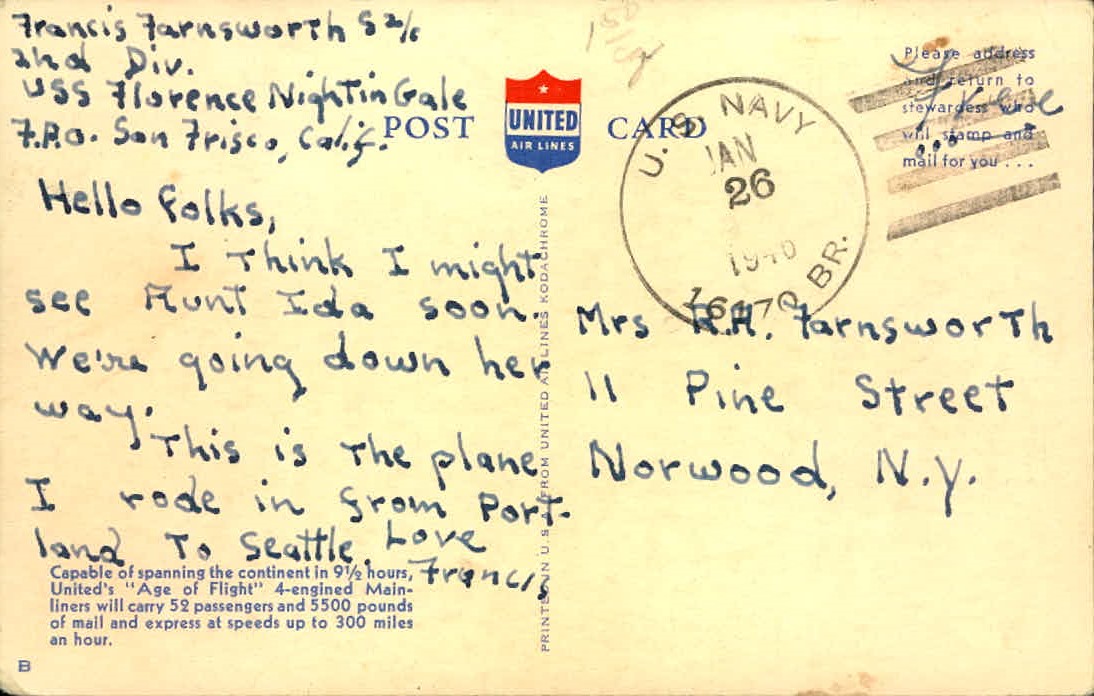 Francis Farnsworth S 2/c
2nd Div.
USS Florence NightinGale
F.P.O. San Frisco, Calif.
POST CARD
UNITED
AIR LINES
Please address
and return to
stewardess who
will stamp and
mail for you . . .
Free
U. S. NAVY
JAN
26
BR.
Hello folks,
I Think I might
see Aunt Ida soon.
We're going down her
way.
This is The plane
I rode in from Port-
land To Seattle.
Love
Francis
Mrs R.H. Farnsworth
11 Pine Street
Norwood, N.y.
Capable of spanning the continent in 9½ hours,
United's "Age of Flight" 4-engined Main-
liners will carry 52 passengers and 5500 pounds
of mail and express at speeds up to 300 miles
an hour.
B
PRINTED IN U.S.A. FROM UNITED AIR LINES KODACHROME